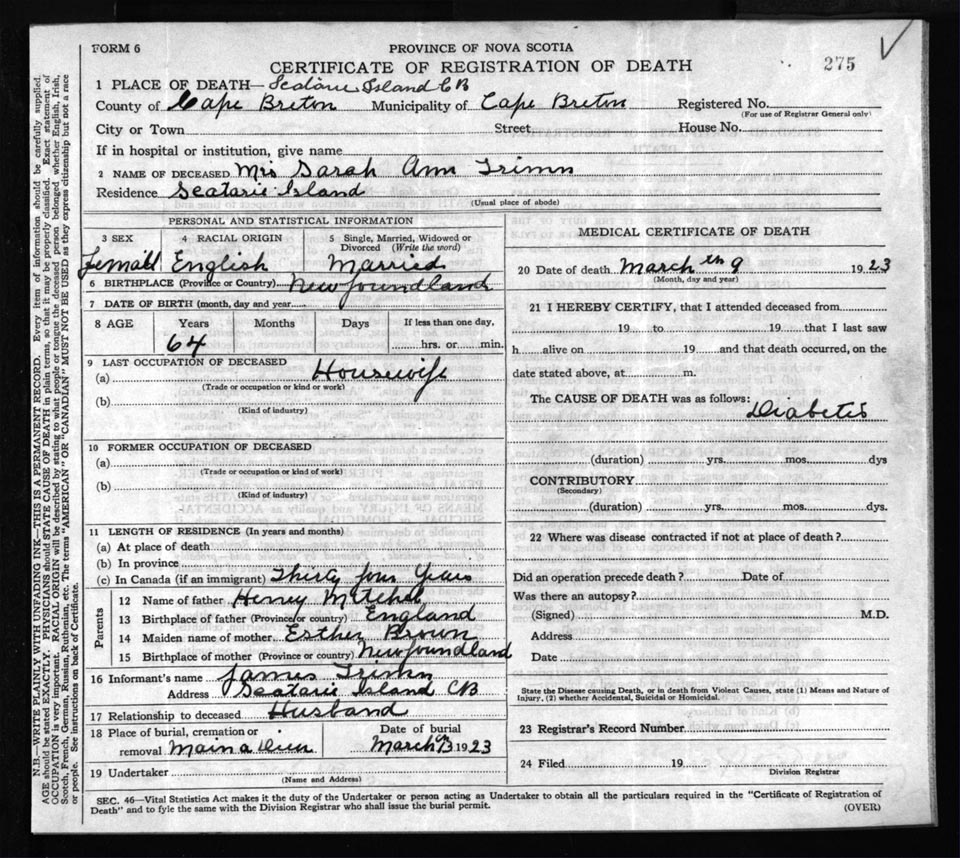 FORM 6
PROVINCE OF NOVA SCOTIA
CERTIFICATE OF REGISTRATION OF DEATH
275
1 PLACE OF DEATH— Scatarie Island CB
County of Cape Breton Municipality of Cape Breton Registered No.
(For use of Registrar General only)
City or Town Street House No.
If in hospital or institution, give name
2 NAME OF DECEASED Mrs Sarah Ann Trimn
Residence Seatarie Island
(Usual place of abode)
PERSONAL AND STATISTICAL INFORMATION
3 SEX 4 RACIAL ORIGIN 5 Single, Married, Widowed or
Divorced (Write the word)
Femall English Married
6 BIRTHPLACE (Province or Country) Newfoundland
7 DATE OF BIRTH (month, day and year)
8 AGE Years Months Days If less than one day,
64 hrs. or min.
9 LAST OCCUPATION OF DECEASED Housewife
(a)
(Trade or occupation or kind or work)
(b)
(Kind of industry)
10 FORMER OCCUPATION OF DECEASED
(a)
(Trade or occupation or kind of work)
(b)
(Kind of industry)
11 LENGTH OF RESIDENCE (In years and months)
(a) At place of death
(b) In province
(c) In Canada (if an immigrant) Thirty four Years
Parents
12 Name of father Henry Mitchel
13 Birthplace of father (Province or country) England
14 Maiden name of mother Esther Brown
15 Birthplace of mother (Province or country) Newfoundland
16 Informant's name James Trimn
Address Seatarie Island CB
17 Relationship to deceased Husband
18 Place of burial, cremation or Date of burial
removal Main a Dieu March 13 1923
19 Undertaker
(Name and Address)
MEDICAL CERTIFICATE OF DEATH
20 Date of death March th 9 1923
(Month, day and year)
21 I HEREBY CERTIFY, that I attended deceased from
19 to 19 that I last saw
h alive on 19 and that death occurred, on the
date stated above, at m.
The CAUSE OF DEATH was as follows:
Diabetis
(duration) yrs. mos. dys
CONTRIBUTORY
(Secondary)
(duration) yrs. mos. dys.
22 Where was disease contracted if not at place of death?
Did an operation precede death? Date of
Was there an autopsy?
(Signed) M.D.
Address
Date
State the Disease causing Death, or in death from Violent Causes, state (1) Means and Nature of
Injury, (2) whether Accidental, Suicidal or Homicidal.
23 Registrar's Record Number
24 Filed 19
Division Registrar
SEC. 46—Vital Statistics Act makes it the duty of the Undertaker or person acting as Undertaker to obtain all the particulars required in the "Certificate of Registration of
Death" and to fyle the same with the Division Registrar who shall issue the burial permit.
(OVER)
N.B.—WRITE PLAINLY WITH UNFADING INK—THIS IS A PERMANENT RECORD. Every item of information should be carefully supplied.
AGE should be stated EXACTLY. PHYSICIANS should STATE CAUSE OF DEATH in plain terms, so that it may be properly classified. Exact statement of
OCCUPATION is very important. RACIAL ORIGIN will be described by stating to what people or tongue the deceased person belonged whether English, Irish,
Scotch, French, German, Russian, Ruthenian, etc. The terms "AMERICAN" OR "CANADIAN" MUST NOT BE USED as they express citizenship but not a race
or people. See instructions on back of Certificate.